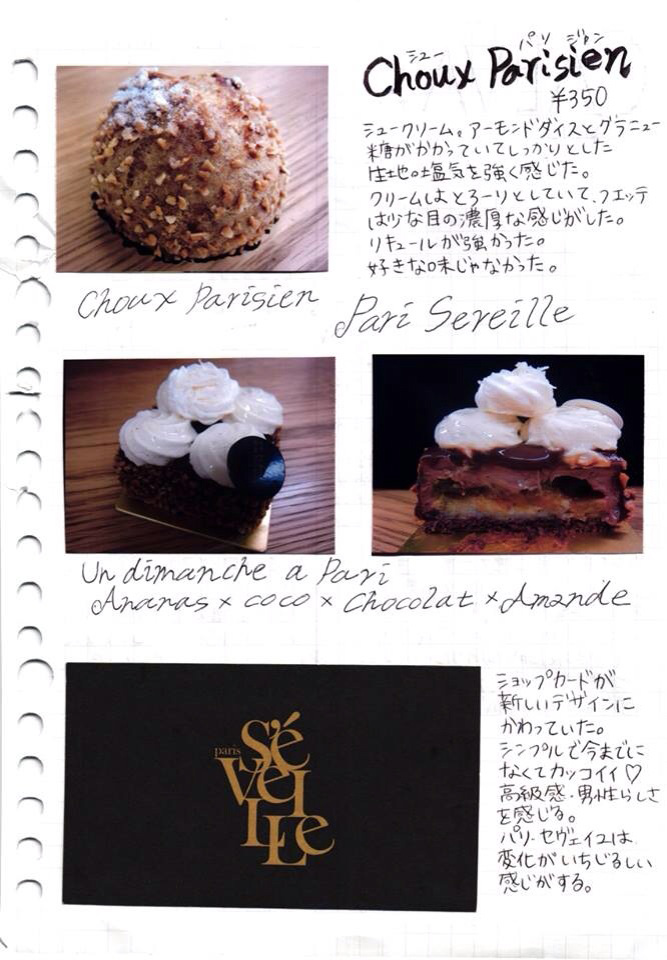 シュー パリ ジャン
Choux Parisien
¥350
シュークリーム。アーモンドダイスとグラニュー
糖がかかっていてしっかりとした
生地。塩気を強く感じた。
クリームはとろーりとしていて、フエッテ
は少な目の濃厚な感じがした。
リキュールが強かった。
好きな味じゃなかった。
Choux Parisien
Pari Sereille
Un dimanche a Pari
Ananas × coco × Chocolat × Amande
ショップカードが
新しいデザインに
かわっていた。
シンプルで今までに
なくてカッコイイ♡
高級感・男性らしさ
を感じる。
パリ・セヴェイユは
変化がいちじるしい
感じがする。
paris
Sé
veI
LLe